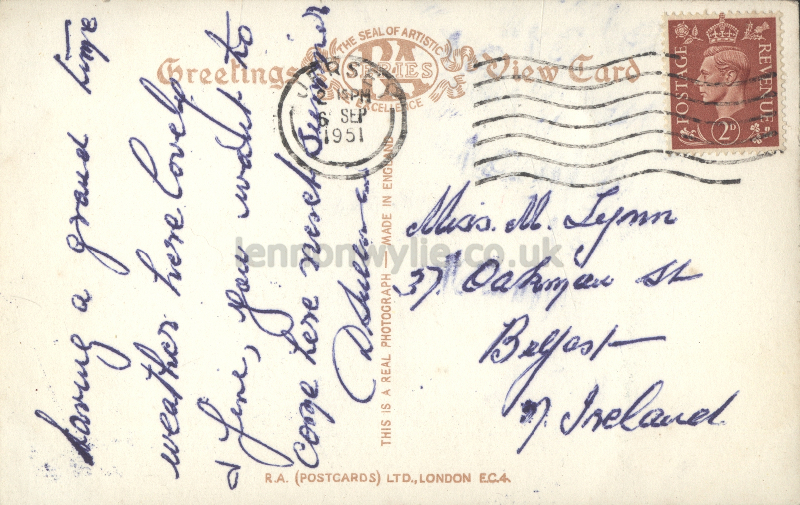 Greetings View Card
THE SEAL OF ARTISTIC
RA
SERIES
EXCELLENCE
JERSEY
PM
SEP
1951
POSTAGE
REVENUE
2D
having a grand time
weather here lovely
& fine, you want to
come here next Summer
THIS IS A REAL PHOTOGRAPH — MADE IN ENGLAND
Miss. M. Lynn
37 Oakman St
Belfast
N Ireland
R.A. (POSTCARDS) LTD., LONDON E.C.4.
lennonwylie.co.uk